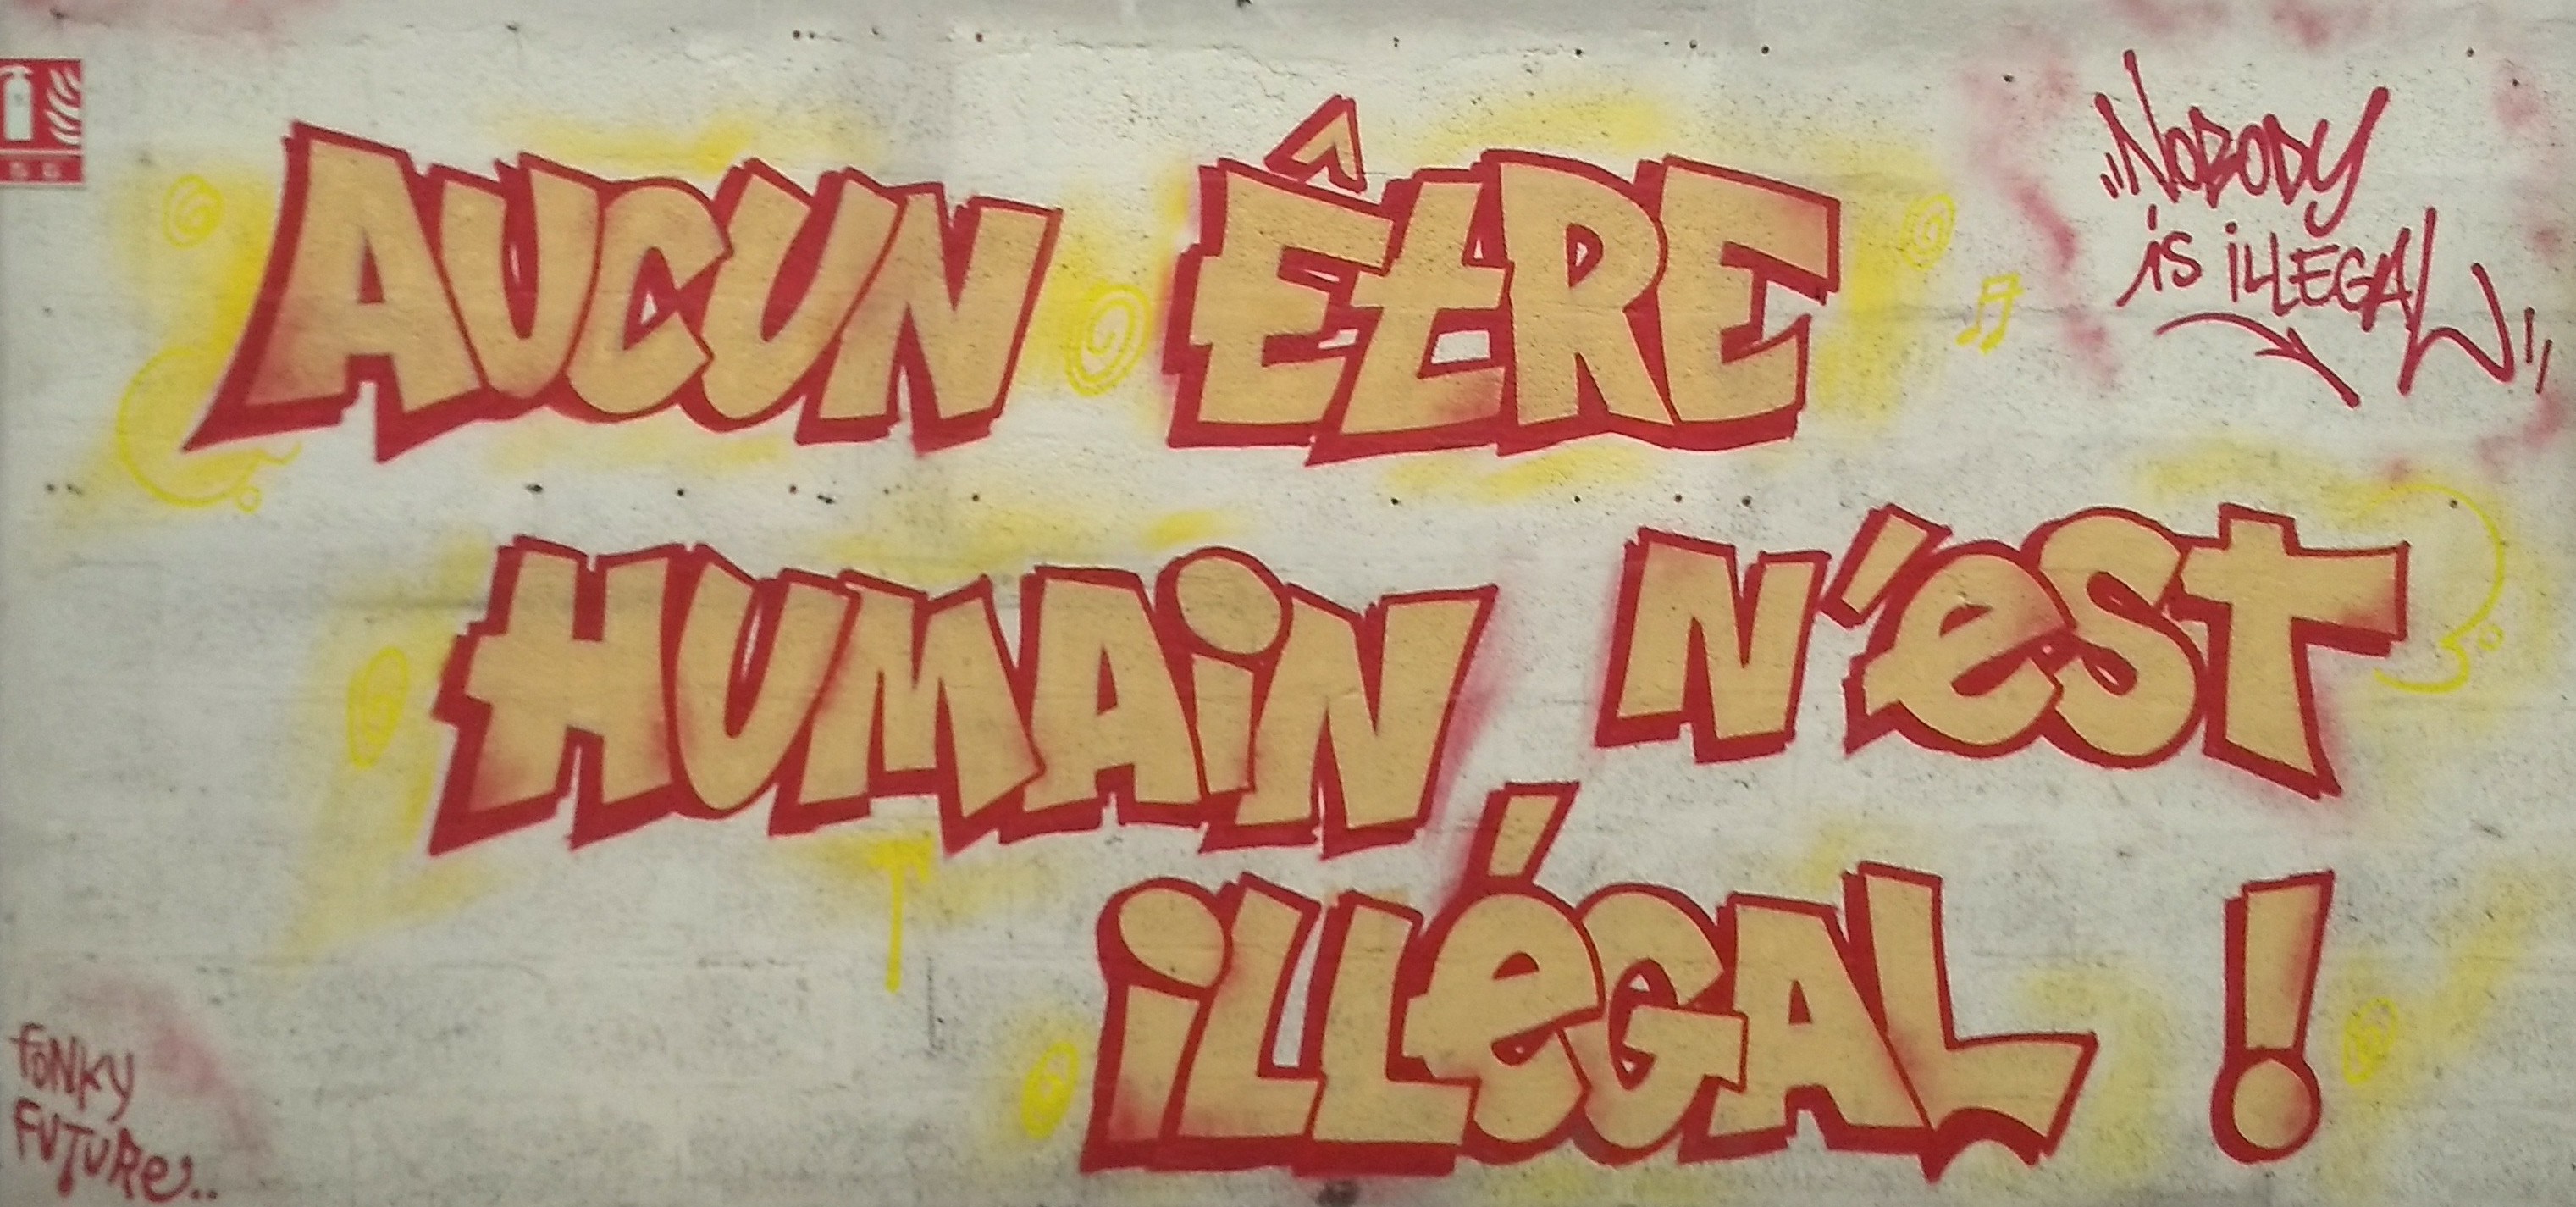 AUCUN ÊtRE
HUMAiN N'eST
iLLéGAL !
"NOBODY
iS iLLEGAL"
FONKY
FUTURe..